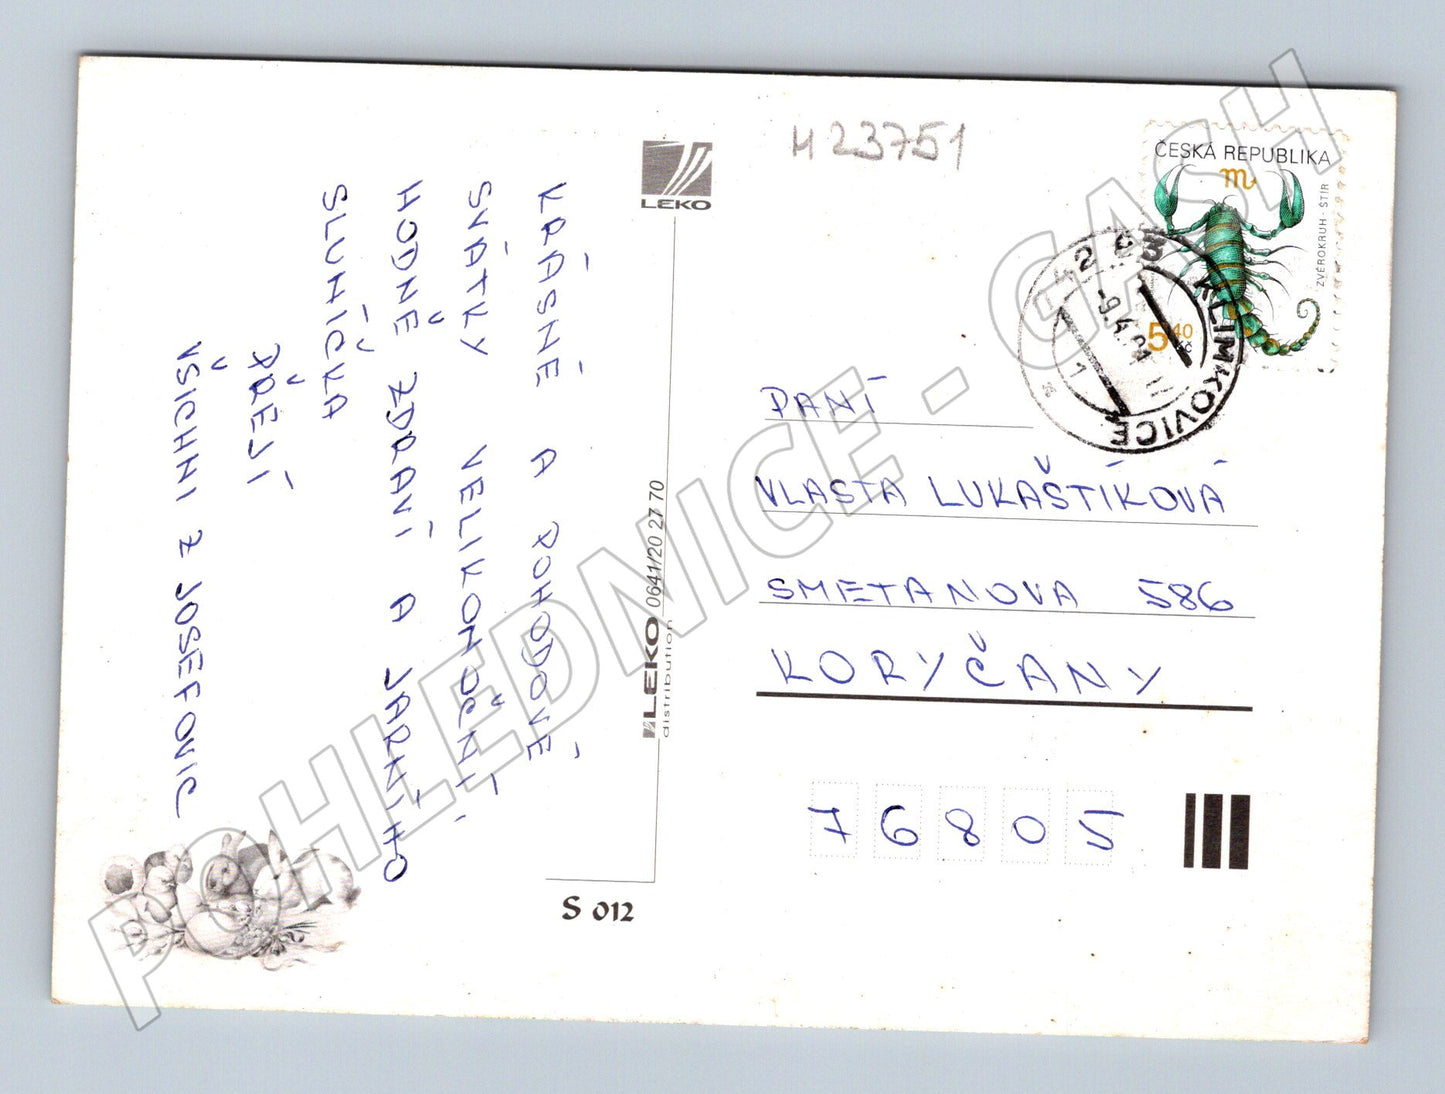 KRÁSNÉ A POHODOVÉ
SVÁTKY VELIKONOČNÍ,
HODNĚ ZDRAVÍ A JARNÍHO
SLUNÍČKA
PŘEJÍ
VŠICHNI Z JOSEFOVIC
LEKO
LEKO 0641/20 27 70
distribution
S 012
H 23751
ČESKÁ REPUBLIKA
ZVĚROKRUH - ŠTÍR
5 40
Kč
KLIMKOVICE
1
PANÍ
VLASTA LUKAŠTÍKOVÁ
SMETANOVA 586
KORYČANY
76805
POHLEDNICE - GASH